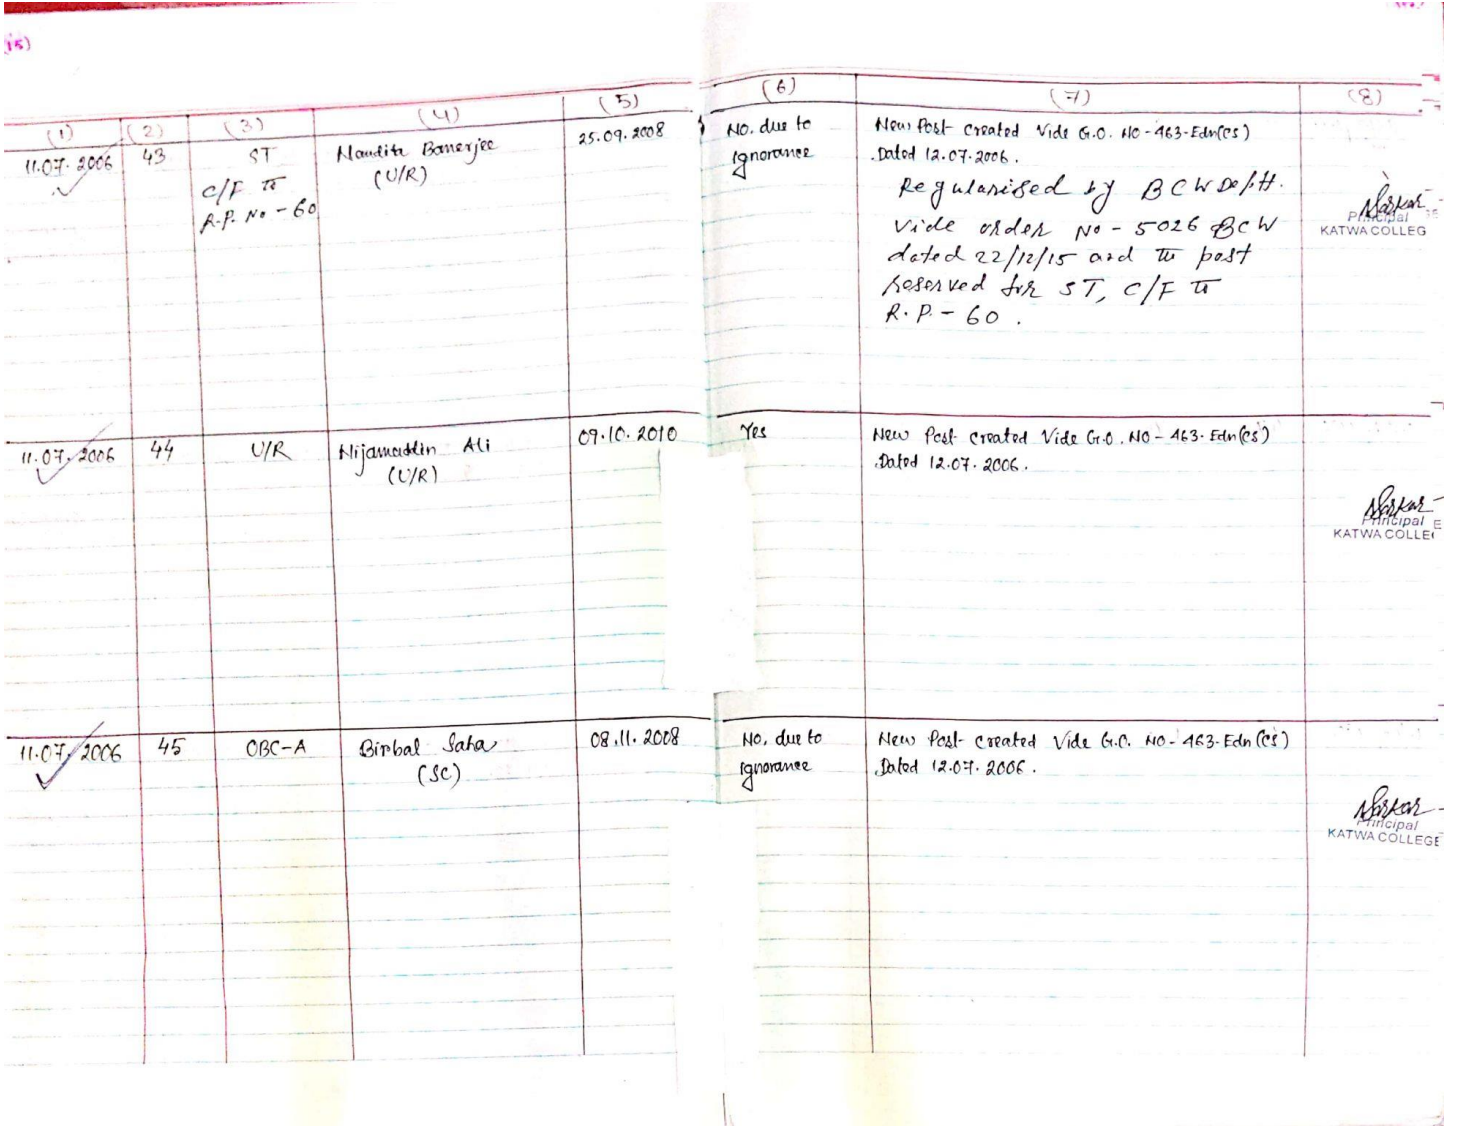 (15)
(1) (2) (3) (4) (5) (6) (7) (8)
11.07.2006 43 ST Nandita Banerjee 25.09.2008 No. due to New Post created Vide G.O. NO-463-Edn(CS)
(U/R) Ignorance Dated 12.07.2006.
C/F to Regularised by BCW Deptt.
R.P. No - 60 Vide order No - 5026 BCW
dated 22/12/15 and the post
reserved for ST, C/F to
R.P. - 60.
Sarkar
Principal
KATWA COLLEG
11.07.2006 44 U/R Nijamaddin Ali 09.10.2010 Yes New Post created Vide G.O. NO - 463-Edn(CS)
(U/R) Dated 12.07.2006.
Sarkar
Principal
KATWA COLLE
11.07.2006 45 OBC-A Birbal Saha 08.11.2008 No, due to New Post created Vide G.O. NO - 463-Edn(CS)
(SC) Ignorance Dated 12.07.2006.
Sarkar
Principal
KATWA COLLEGE